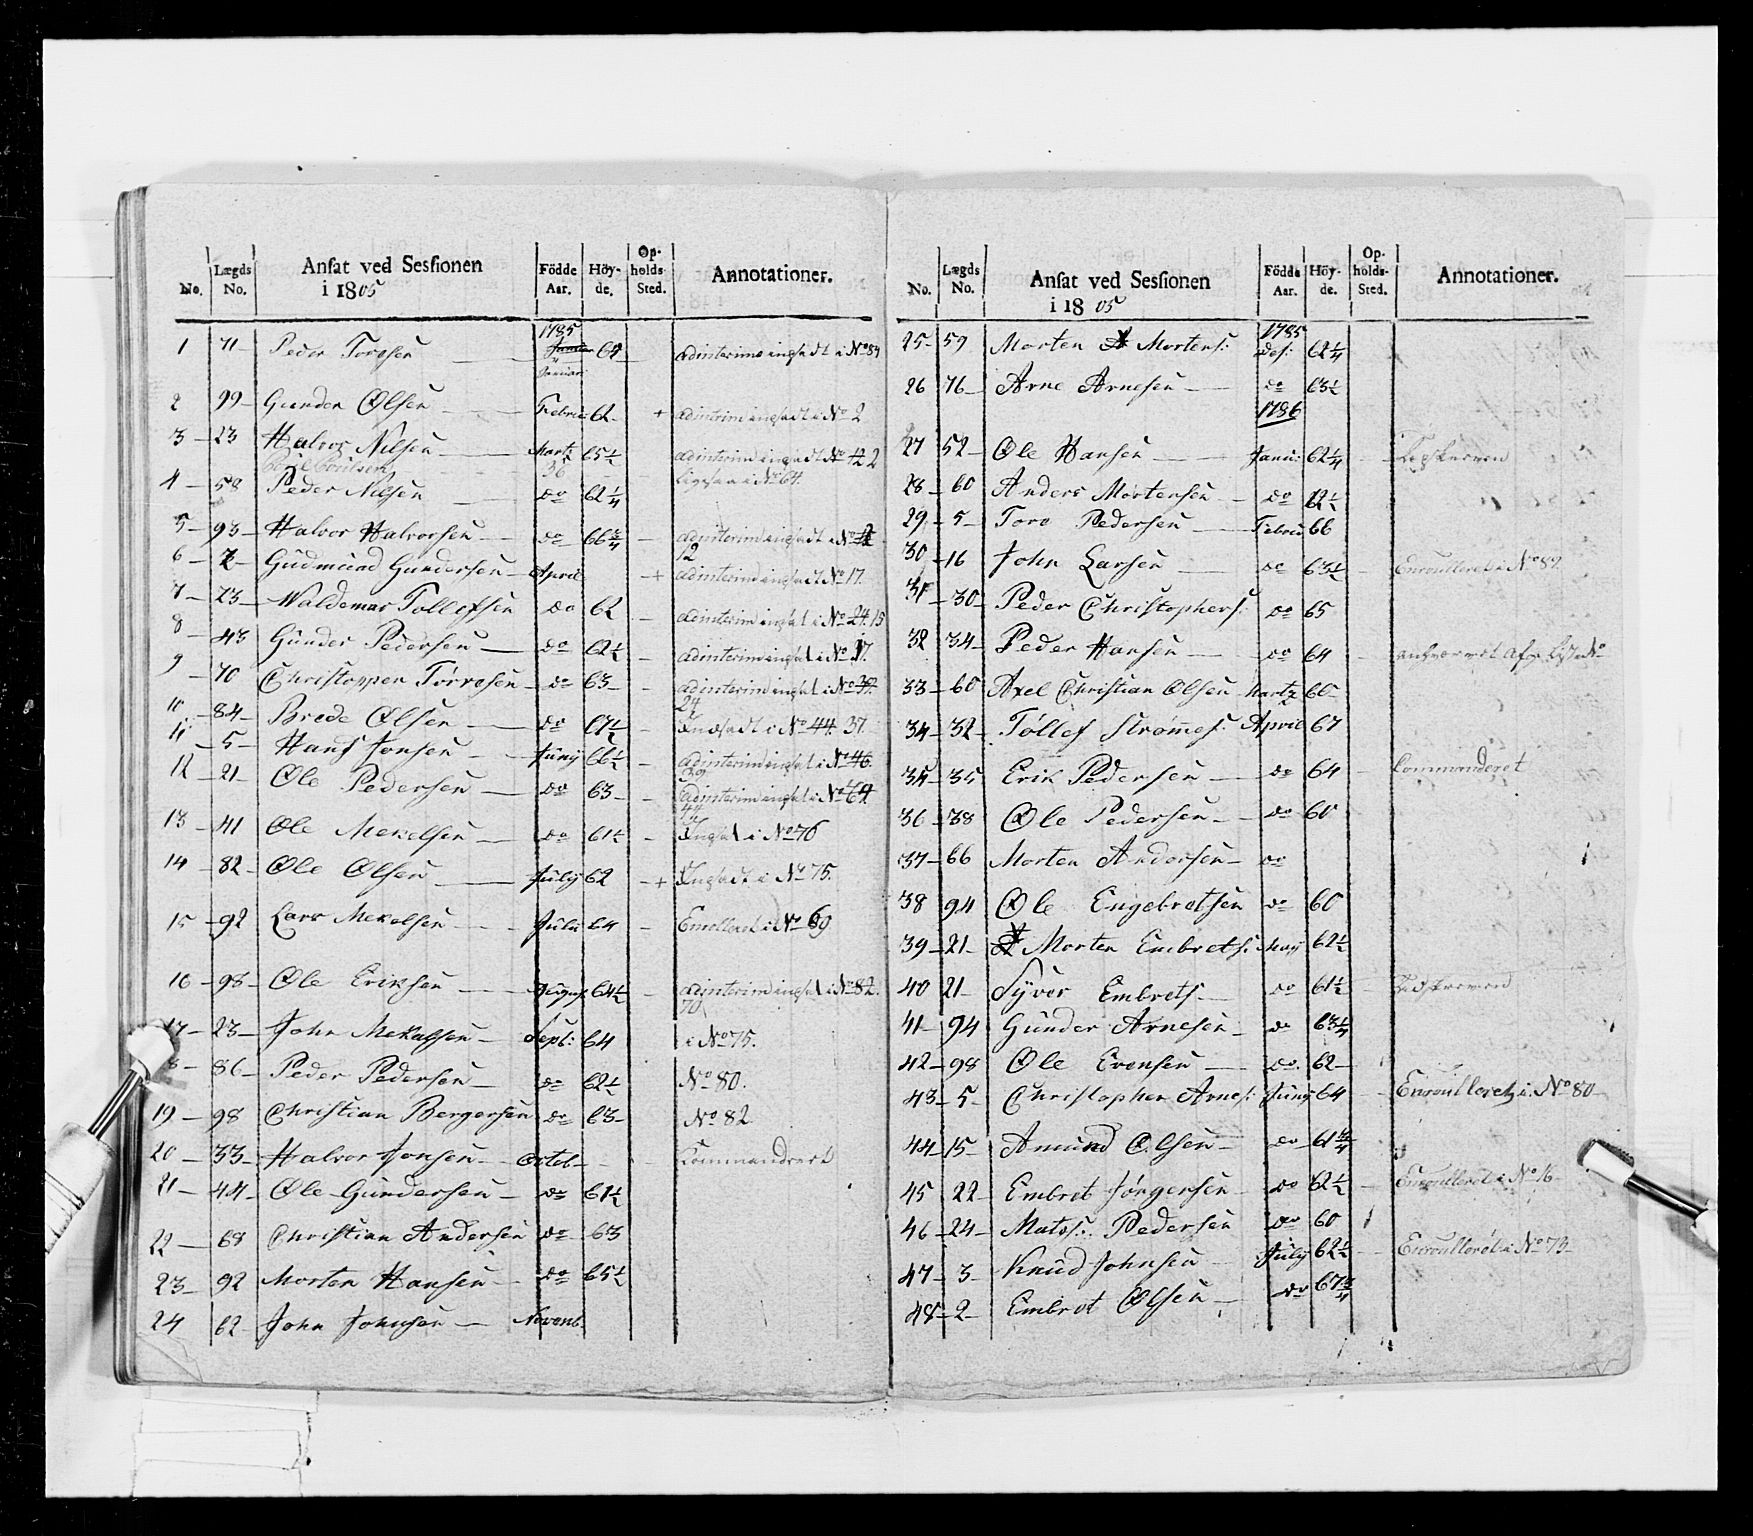 No. Lægds No. Ansat ved Sessionen i 1805 Födde Aar. Höyde. Opholds-Sted. Annotationer.
1785
1 71 Peder Toresen Januari 62 adinterims ingsadt i No 84
2 99 Gunder Olsen Febru: 62 + adinterim ingsadt i No 2
3 23 Halvor Nilsen Marts 65½ adinterim ingsadt No 12 2
4 58 Peder Nilsen do 62¼ No 64.
5 93 Halvor Halvorsen do 66¾ adinterim ingsadt i No 12
6 2 Gudmund Gundersen April + adinterim ingsadt No 17.
7 23 Waldemar Tollefsen do 62 adinterim ingsat i No 24. 15
8 43 Gunder Pedersen do 62½ adinterim ingsat i No 17.
9 70 Christopher Torresen do 63 adinterim ingsat i No 24
10 84 Brede Olsen do 67½ Indsadt i No 44. 37.
11 5 Hans Jonsen Juny 66½ adinterim ingsat i No 46. 39
12 21 Ole Pedersen do 63 adinterim ingsat i No 64. 44
13 41 Ole Mekelsen do 61½ Ingsat i No 76
14 82 Ole Olsen July 62 + Ingsadt i No 75.
15 92 Lars Mekelsen Julii 64 Enrolleret i No 69
16 98 Ole Eriksen August 64½ adinterim ingsat i No 82. 70
17 23 John Mekalsen Sept: 64 i No 75.
18 86 Peder Pedersen do 62½ No 80.
19 98 Christian Bergersen do 63 No 82
20 33 Halvor Jonsen Octob Commanderet
21 44 Ole Gundersen do 61½
22 68 Christian Andersen do 63
23 92 Morten Hansen do 65½
24 62 John Johnsen Novemb.
No. Lægds No. Ansat ved Sessionen i 1805 Födde Aar. Höyde. Opholds-Sted. Annotationer.
1785
25 59 Morten Mortens: Des: 62¼
26 76 Arne Arnesen do 63½
1786
27 52 Ole Hansen Janu: 62¼
28 60 Anders Mortensen do 62½
29 5 Tore Pedersen Febru 66
30 16 John Larsen do 63½ Enroulleret i No 89.
31 30 Peder Christophers: do 65
32 34 Peder Hansen do 64
33 60 Axel Christian Olsen Marts 60
34 32 Tøllef Strømmes: April 67
35 35 Erik Pedersen do 64 Commanderet
36 38 Ole Pedersen do 60
37 66 Morten Andersen do
38 94 Ole Engebretsen do 60
39 21 Morten Embrets: May 62½
40 21 Syver Embrets. do 61½
41 94 Gunder Arnesen do 63¼
42 98 Ole Evensen do. 62
43 5 Christopher Arnes: Juny 64 Enroulleret i No 80
44 15 Amund Olsen do 61¾
45 22 Embret Jørgensen do 62½ Enroulleret i No 16
46 24 Mats: Pedersen do 60
47 3 Knud Johnsen July 62½ Enroulleret i No 73
48 2 Embret Olsen do 67¾